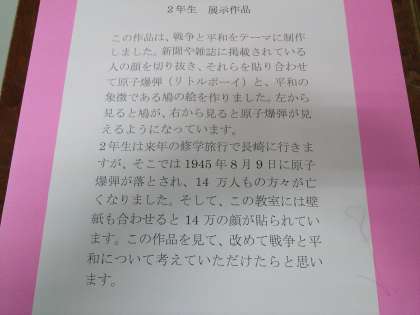 2年生　展示作品
この作品は、戦争と平和をテーマに制作
しました。新聞や雑誌に掲載されている
人の顔を切り抜き、それらを貼り合わせ
て原子爆弾（リトルボーイ）と、平和の
象徴である鳩の絵を作りました。左から
見ると鳩が、右から見ると原子爆弾が見
えるようになっています。
2年生は来年の修学旅行で長崎に行きま
すが、そこでは1945年8月9日に原子
爆弾が落とされ、14万人もの方々が亡
くなりました。そして、この教室には壁
紙も合わせると14万の顔が貼られてい
ます。この作品を見て、改めて戦争と平
和について考えていただけたらと思い
ます。